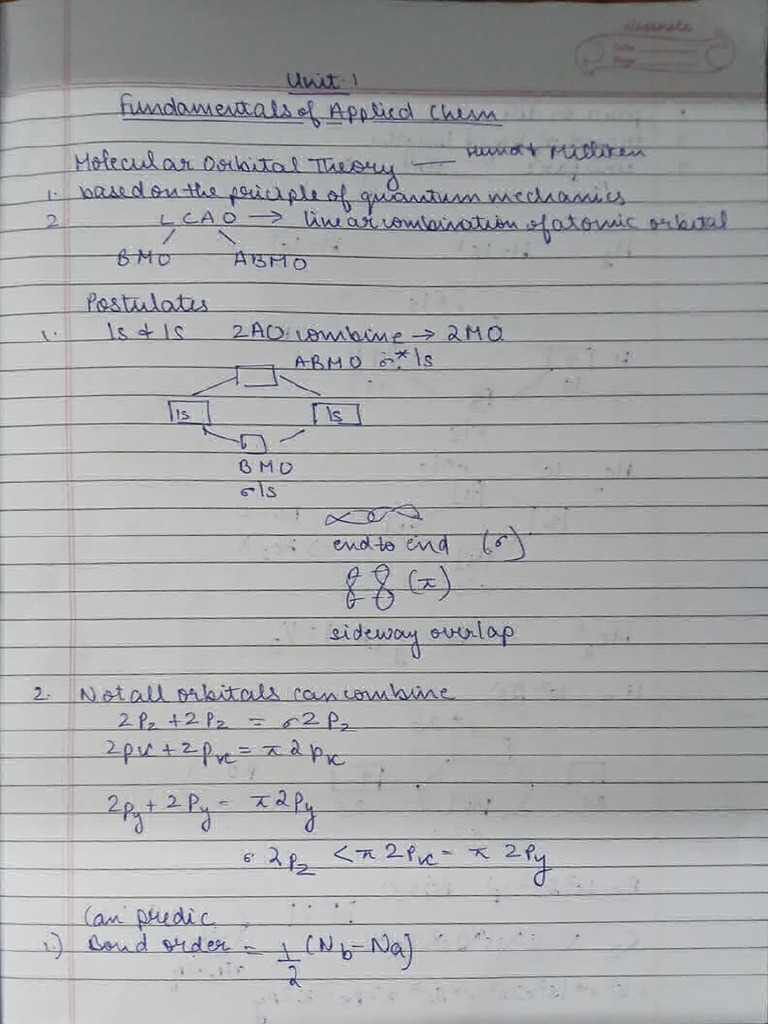 Unit-1
Fundamentals of Applied Chem
Molecular Oorbital Theory — Hund & Milliken
1. based on the priciple of quantum mechanics
2. LCAO → linear combination of atomic orbital
BMO ABMO
Postulates
1. 1s & 1s 2AO combine → 2MO
ABMO σ*1s
1s 1s
BMO
σ1s
end to end (σ)
(π)
sideway overlap
2. Not all orbitals can combine
2Pz + 2Pz = σ2Pz
2px + 2px = π2px
2py + 2Py = π2Py
σ2Pz < π2Px = π2Py
Can predic
i.) Bond order = 1/2 (Nb - Na)